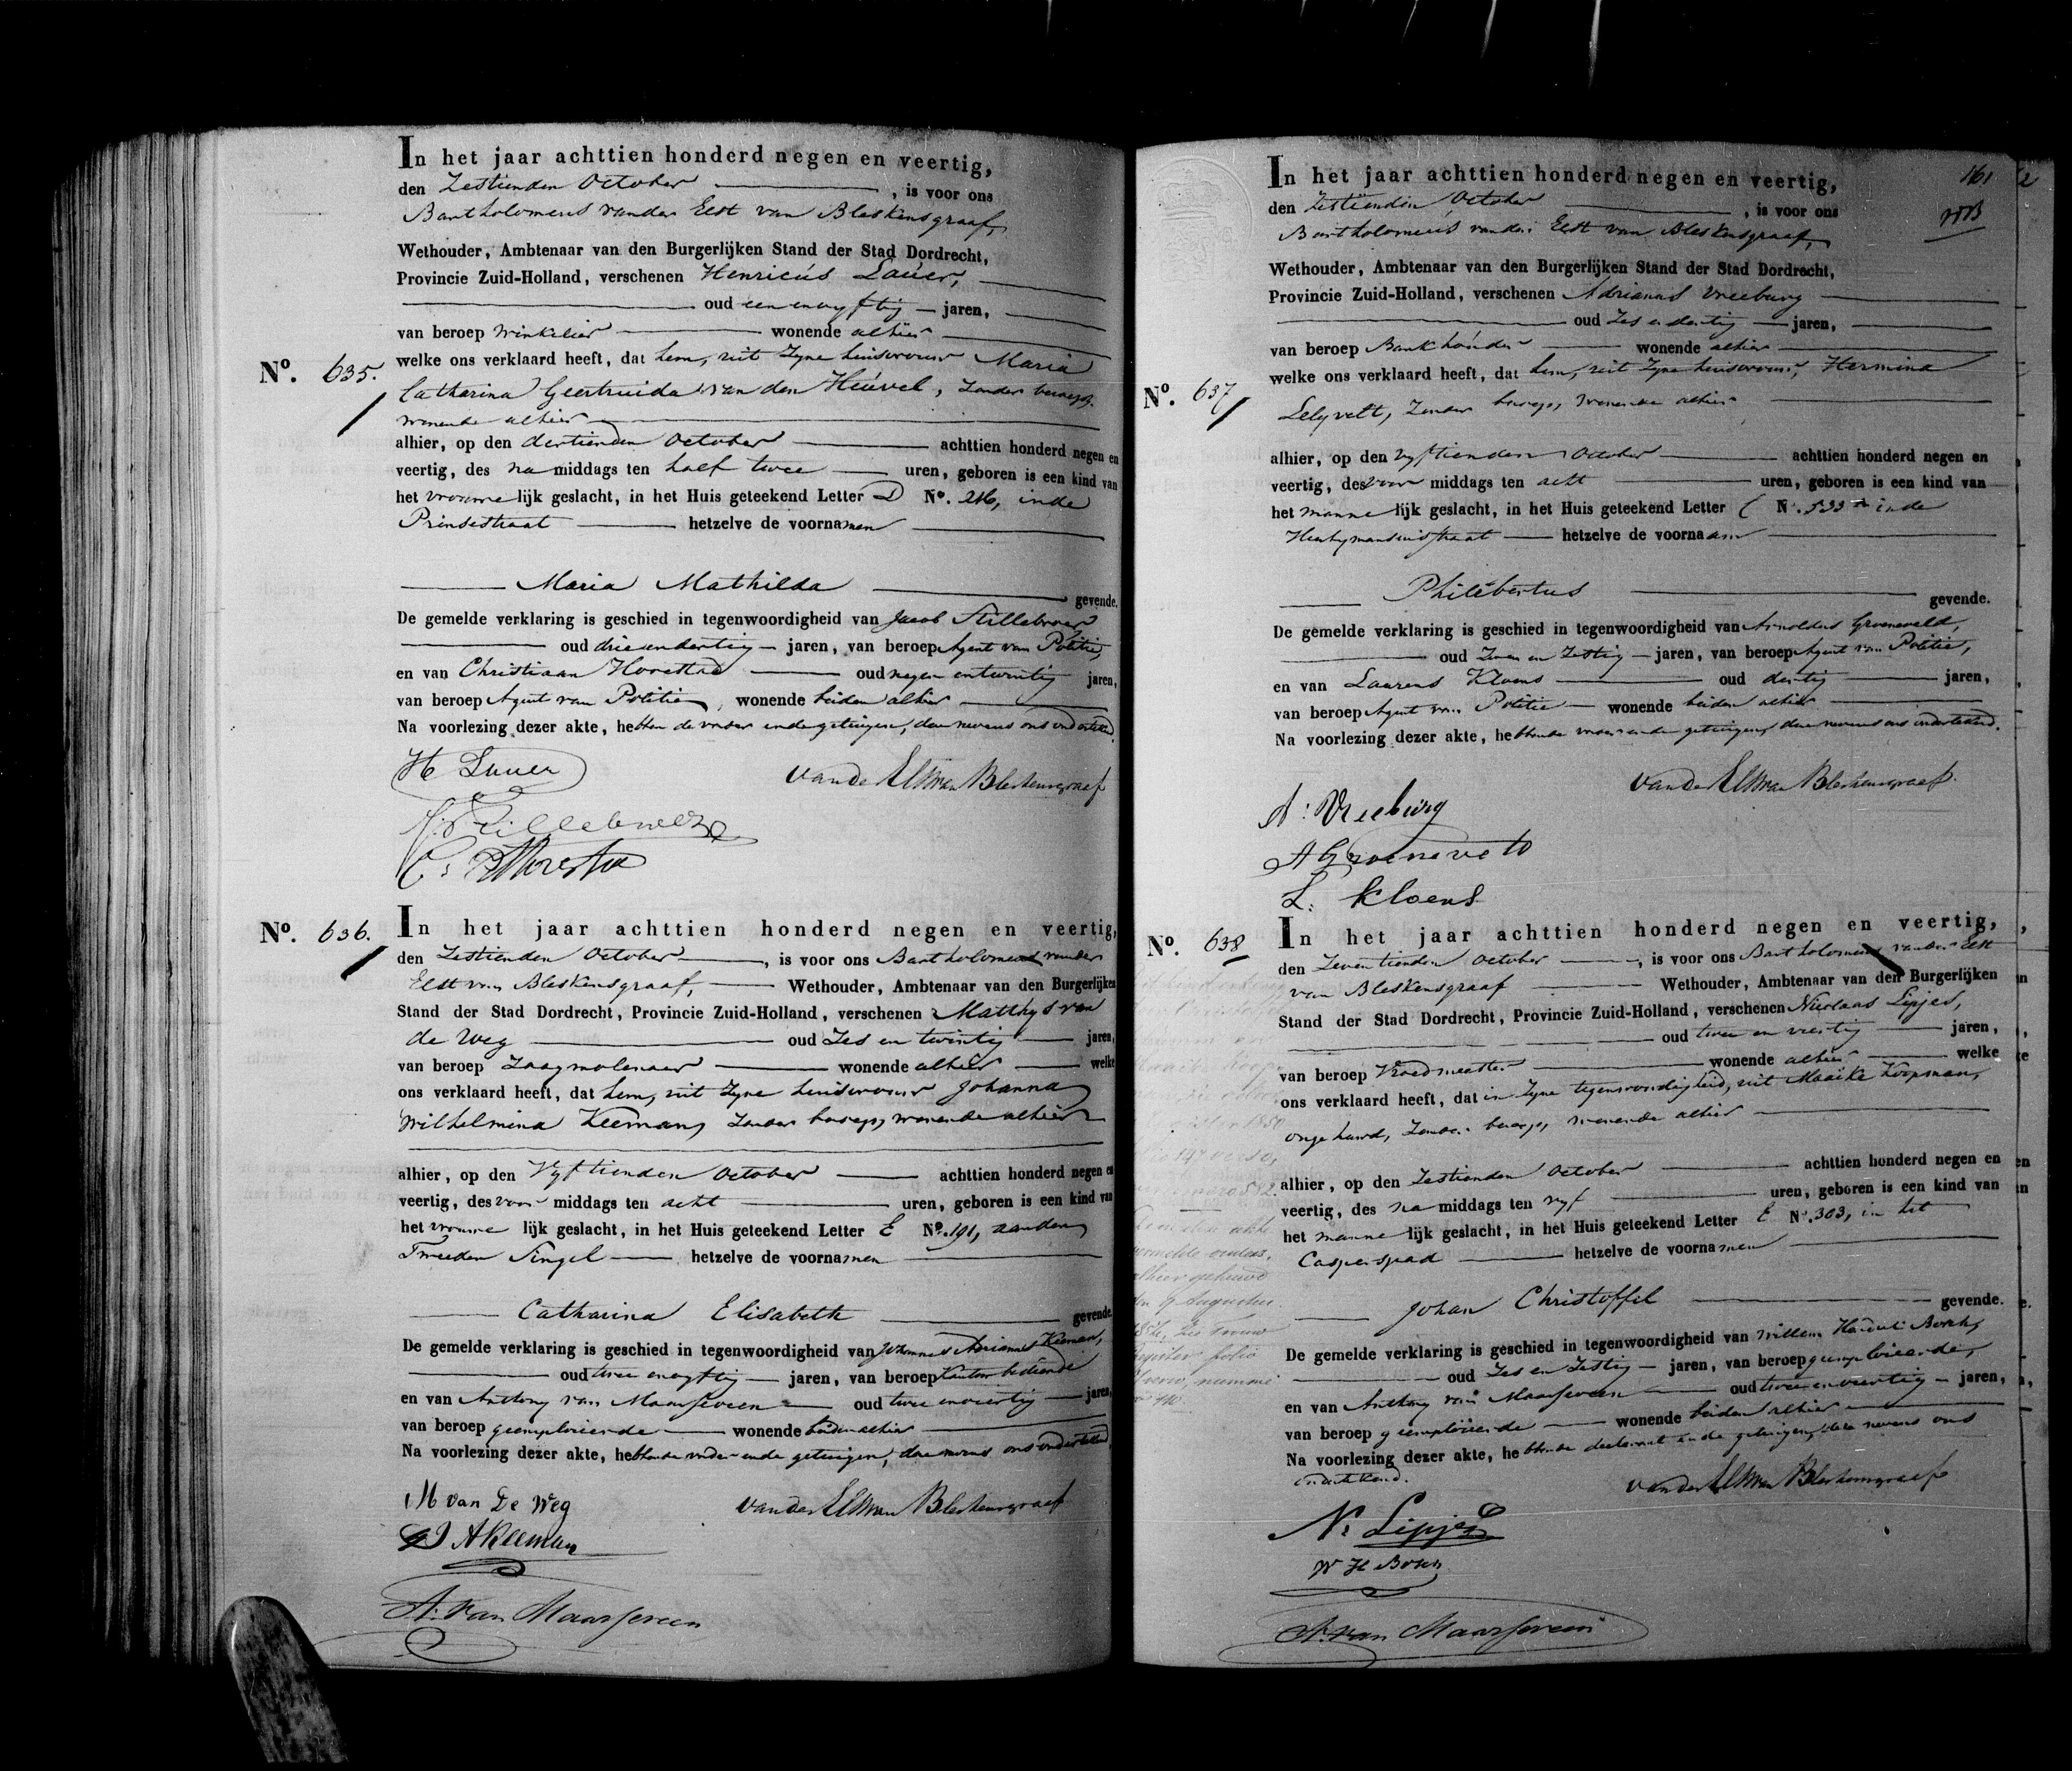 In het jaar achttien honderd negen en veertig,
den Zestienden October , is voor ons
Bartholomeus vander Elst van Bleskensgraaf,
Wethouder, Ambtenaar van den Burgerlijken Stand der Stad Dordrecht,
Provincie Zuid-Holland, verschenen Henricus Lauer,
oud een en vyftig jaren,
van beroep Winkelier wonende alhier
No. 635. welke ons verklaard heeft, dat hem, uit Zyne huisvrouw Maria
Catharina Geertruida van den Heuvel, Zonder beroep,
wonende alhier
alhier, op den dertienden October achttien honderd negen en
veertig, des na middags ten half twee uren, geboren is een kind van
het vrouwelijk geslacht, in het Huis geteekend Letter D No. 216, inde
Prinsestraat hetzelve de voornamen
Maria Mathilda
gevende.
De gemelde verklaring is geschied in tegenwoordigheid van Jacob Stillebroer
oud drie en dertig jaren, van beroep Agent van Politie,
en van Christiaan oud negen en twintig jaren,
van beroep Agent van Politie, wonende beiden alhier
Na voorlezing dezer akte, hebben de vader en de getuigen, deze nevens ons onderteekend.
H Lauer van der Elst van Bleskensgraaf
No. 636. In het jaar achttien honderd negen en veertig,
den Zestienden October , is voor ons Bartholomeus vander
Elst van Bleskensgraaf, Wethouder, Ambtenaar van den Burgerlijken
Stand der Stad Dordrecht, Provincie Zuid-Holland, verschenen Matthys van
de Weg oud Zes en twintig jaren,
van beroep Zaagmolenaar wonende alhier welke
ons verklaard heeft, dat hem, uit Zyne huisvrouw Johanna
Wilhelmina Keeman, Zonder beroep, wonende alhier
alhier, op den Vyftienden October achttien honderd negen en
veertig, des voor middags ten acht uren, geboren is een kind van
het vrouwe lijk geslacht, in het Huis geteekend Letter E No. 191, aan den
Tweeden Singel hetzelve de voornamen
Catharina Elisabeth
gevende.
De gemelde verklaring is geschied in tegenwoordigheid van Johannes Adrianus Keeman,
oud twee en vyftig jaren, van beroep Kantoorbediende
en van Anthony van Maarseveen oud twee en veertig jaren,
van beroep geemploieerde wonende beiden alhier
Na voorlezing dezer akte, hebbende vader en de getuigen, deze nevens ons onderteekend
M van De Weg van der Elst van Bleskensgraaf
J A Keeman
A. van Maarseveen
161
In het jaar achttien honderd negen en veertig,
den Zestienden October , is voor ons
Bartholomeus vander Elst van Bleskensgraaf,
Wethouder, Ambtenaar van den Burgerlijken Stand der Stad Dordrecht,
Provincie Zuid-Holland, verschenen Adrianus Vreeburg
oud Zes en dertig jaren,
van beroep Bankhouder wonende alhier
No. 637 welke ons verklaard heeft, dat hem, uit Zyne huisvrouw, Hermina
Lelyvelt, Zonder beroep, wonende alhier
alhier, op den vyftienden October achttien honderd negen en
veertig, des voor middags ten acht uren, geboren is een kind van
het manne lijk geslacht, in het Huis geteekend Letter C No. 533 inde
hetzelve de voornaam
Philebertus
gevende.
De gemelde verklaring is geschied in tegenwoordigheid van Arnoldus Groeneveld,
oud Zeven en Zestig jaren, van beroep Agent van Politie,
en van Laurens Kloens oud dertig jaren,
van beroep Agent van Politie wonende beiden alhier
Na voorlezing dezer akte, hebbende vader en de getuigen, deze nevens ons onderteekend.
A: Vreeburg van der Elst van Bleskensgraaf
A Groeneveld
L: Kloens
No. 638 In het jaar achttien honderd negen en veertig,
den Zeventienden October , is voor ons Bartholomeus vander Elst
van Bleskensgraaf Wethouder, Ambtenaar van den Burgerlijken
Stand der Stad Dordrecht, Provincie Zuid-Holland, verschenen Nicolaas Lipjes,
oud twee en veertig jaren,
van beroep Vroedmeester wonende alhier welke
ons verklaard heeft, dat in Zyne tegenwoordigheid, uit Maaike Koopman,
ongehuwd, Zonder beroep, wonende alhier
alhier, op den Zestienden October achttien honderd negen en
veertig, des na middags ten vyf uren, geboren is een kind van
het manne lijk geslacht, in het Huis geteekend Letter E No. 303, in het
Casperspad hetzelve de voornamen
Johan Christoffel
gevende.
De gemelde verklaring is geschied in tegenwoordigheid van Willem
oud Zes en Zestig jaren, van beroep geemploieerde,
en van Anthony van Maarseveen oud twee en veertig jaren,
van beroep geemploieerde wonende beiden alhier
Na voorlezing dezer akte, hebbende declarant en de getuigen, deze nevens ons
onderteekend.
van der Elst van Bleskensgraaf
N: Lipjes
A. van Maarseveen